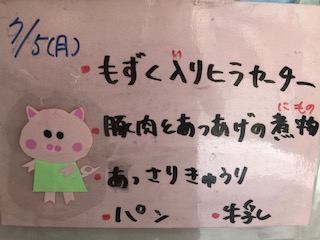 7/5(月)
・もずく入りヒラヤーチー
・豚肉とあつあげの煮物
・あっさりきゅうり
・パン ・牛乳